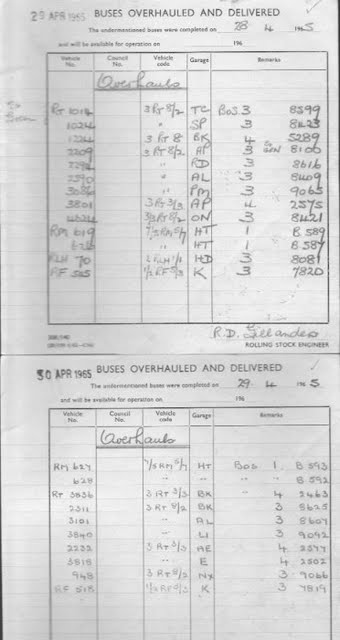 29 APR 1965 BUSES OVERHAULED AND DELIVERED
The undermentioned buses were completed on 28 4 1965
and will be available for operation on 196
Vehicle No. Council No. Vehicle code Garage Remarks
Overhauls
RT 1014 3 RT 8/2 TC BOS 3 8599
1024 " SP 3 8423
1244 3 RT 8 BK 4 5289
2209 3 RT 8/2 AP 3 8100
2294 " RD 3 8616
2590 " AL 3 8409
3086 " PM 3 9065
3801 3 RT 3/3 AP 4 2575
ON 3 8421
RM 619 7/5 RM 5/7 HT 1 B 589
626 HT 1 B 587
RLH 70 2 RLH 1/1 HD 3 8081
RF 505 1/2 RF 5/3 K 3 7820
R.D. Gillanders
ROLLING STOCK ENGINEER
30 APR 1965 BUSES OVERHAULED AND DELIVERED
The undermentioned buses were completed on 29 4 1965
and will be available for operation on 196
Vehicle No. Council No. Vehicle code Garage Remarks
Overhauls
RM 627 7/5 RM 5/7 HT BOS 1 B 593
628 " " " " B 592
RT 3836 3 RT 3/3 BK " 4 2463
2311 3 RT 8/2 BK 3 8625
3101 " AL 3 8607
3840 " LI 3 9042
2232 3 RT 3/3 AE 4 2577
3818 " E 4 2502
948 3 RT 8/2 NX 3 9066
RF 518 1/2 RF 5/3 K 3 7819